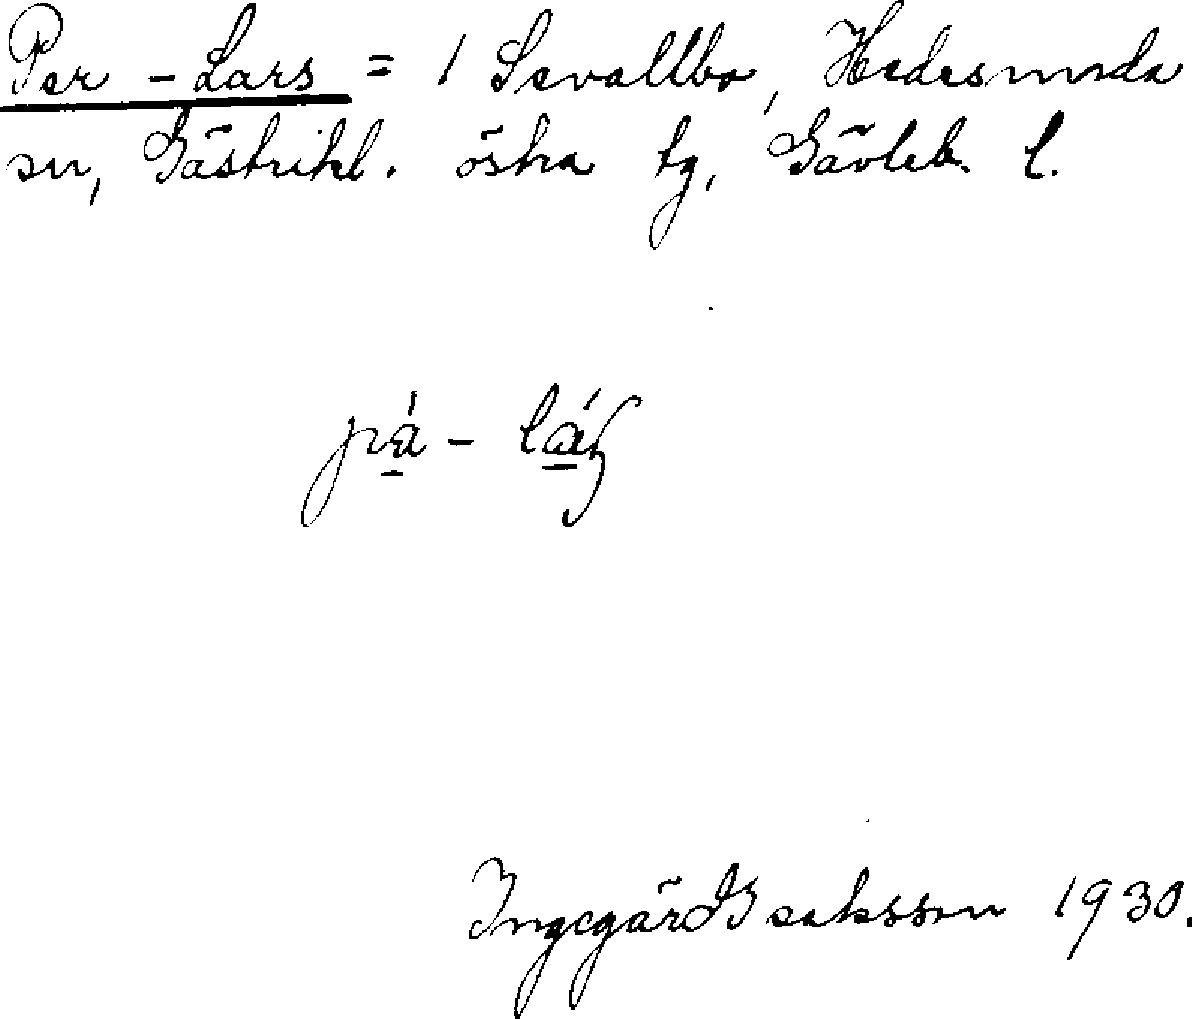 Per - Lars = 1 Sevallbo, Hedesunda
sn, Gästrikl. östra tg, Gävleb. l.
Ingegärd Isaksson 1930.